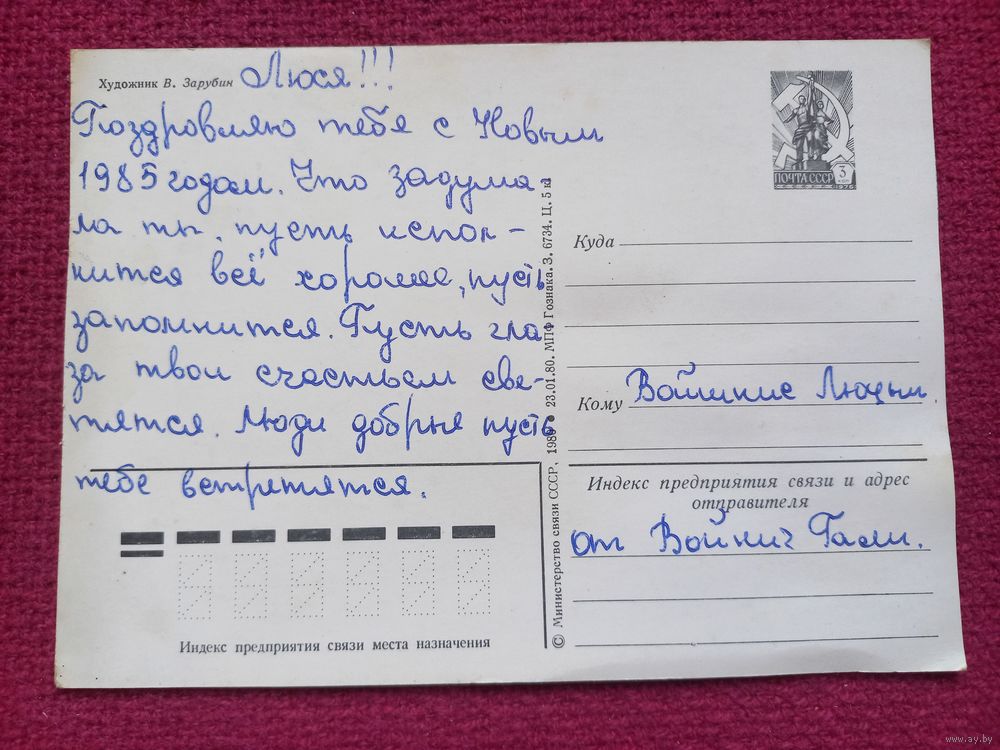 Художник В. Зарубин
Люся!!!
Поздровляю тебя с Новым
1985 годом. Что задума-
ла ты, пусть испол-
нится всё хорошее, пусть
запомнится. Пусть гла-
за твои счастьем све-
тятся. Люди добрые пусть
тебе встретятся.
ПОЧТА СССР
3
КОП
1976
Куда
Кому
от Войнич Гали.
Индекс предприятия связи и адрес
отправителя
Индекс предприятия связи места назначения
© Министерство связи СССР, 1980 23.01.80. МПФ Гознака. З. 6734. Ц. 5 к
www.ay.by